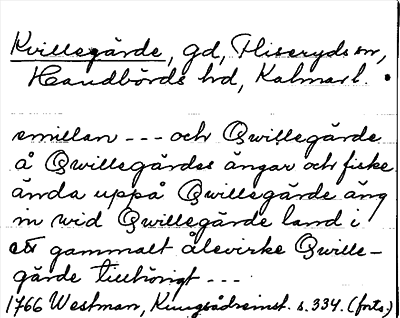 Kvillegärde, gd, Fliseryds sn,
Handbörds hd, Kalmar l.
emillan --- och Qwillegärde
å Qwillegärdes ängar och fiske
ända uppå Qwillegärde äng
m wid Qwillegärde land i
ett gammalt ålevirke Qwille-
gärde tillhörigt ---
1766 Westman, Kungsådreinst. s. 334. (forts.)